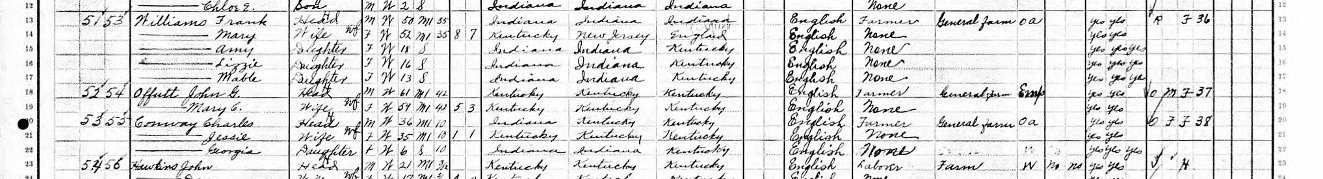 12 Chloe E. Son M W 2 S Indiana Indiana Indiana None 12
13 51 53 Williams Frank Head M W 50 M1 35 Indiana Indiana Indiana English Farmer General farm OA yes yes R F 36 13
14 Mary Wife F W 52 M1 35 8 7 Kentucky New Jersey England English None yes yes
15 Amy Daughter F W 18 S Indiana Indiana Kentucky English None yes yes yes
16 Lizzie Daughter F W 16 S Indiana Indiana Kentucky English None yes yes yes
17 Mable Daughter F W 13 S Indiana Indiana Kentucky English None yes yes ye 17
18 52 54 Offutt John G. Head M W 61 M1 42 Kentucky Kentucky Kentucky English Farmer General farm Emp yes yes O M F 37 18
19 Mary E. Wife F W 59 M1 42 5 3 Kentucky Kentucky Kentucky English None yes yes 19
20 53 55 Conway Charles Head M W 36 M1 10 Indiana Kentucky Kentucky English Farmer General farm OA yes yes O F F 38 20
21 Jessie Wife F W 35 M1 10 1 1 Kentucky Kentucky Kentucky English None yes yes 21
22 Georgia Daughter F W 6 S Indiana Indiana Kentucky English None yes yes yes 22
23 54 56 Hawkins John Head M W 21 M1 Kentucky Kentucky Kentucky English Laborer Farm W no no yes yes H 23